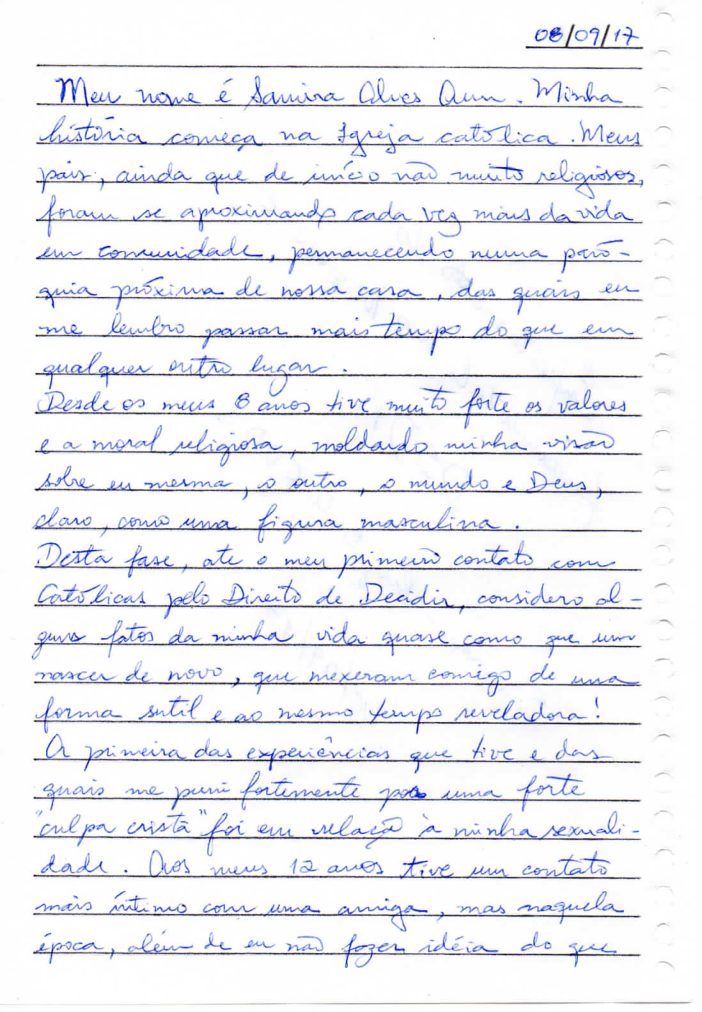 08/09/17
Meu nome é Samira Alves Aun. Minha
história começa na Igreja católica. Meus
pais, ainda que de início não muito religiosos,
foram se aproximando cada vez mais da vida
em comunidade, permanecendo numa paró-
quia próxima de nossa casa, das quais eu
me lembro passar mais tempo do que em
qualquer outro lugar.
Desde os meus 8 anos tive muito forte os valores
e a moral religiosa, moldando minha visão
sobre eu mesma, o outro, o mundo e Deus,
claro, como uma figura masculina.
Desta fase, ate o meu primeiro contato com
Católicas pelo Direito de Decidir, considero al-
guns fatos da minha vida quase como que um
nascer de novo, que mexeram comigo de uma
forma sutil e ao mesmo tempo reveladora!
A primeira das experiências que tive e das
quais me puni fortemente por uma forte
"culpa cristã" foi em relação à minha sexuali-
dade. Aos meus 12 anos tive um contato
mais íntimo com uma amiga, mas naquela
época, além de eu não fazer idéia do que